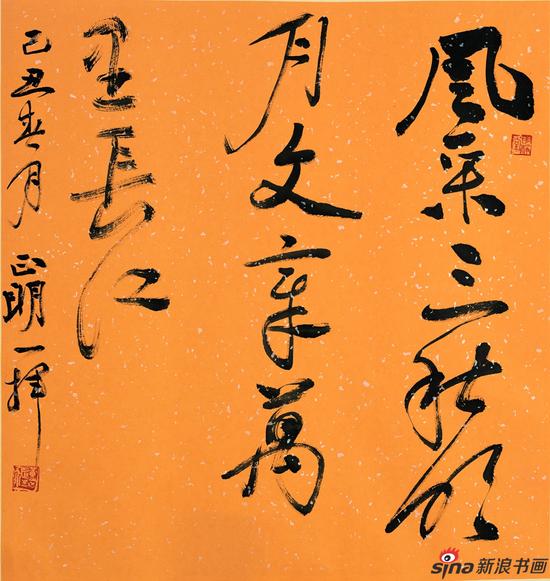 風采三秋明
月文章萬
里長江
己丑春月 正明一揮
sina新浪书画